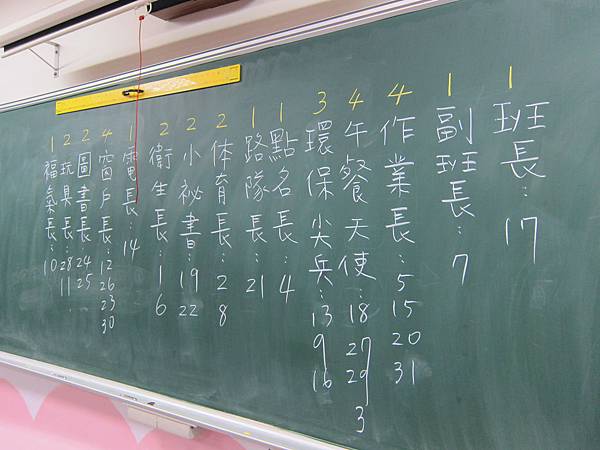 1 班長：17
1 副班長：7
4 作業長：5 15 20 31
4 午餐天使：18 27 29 3
3 環保尖兵：13 9 16
1 點名長：4
1 路隊長：21
2 体育長：2 8
2 小祕書：19 22
2 衛生長：1 6
1 電長：14
4 窗戶長：12 26 23 30
2 圖書長：24 25
2 玩具長：28 11
1 福氣長：10